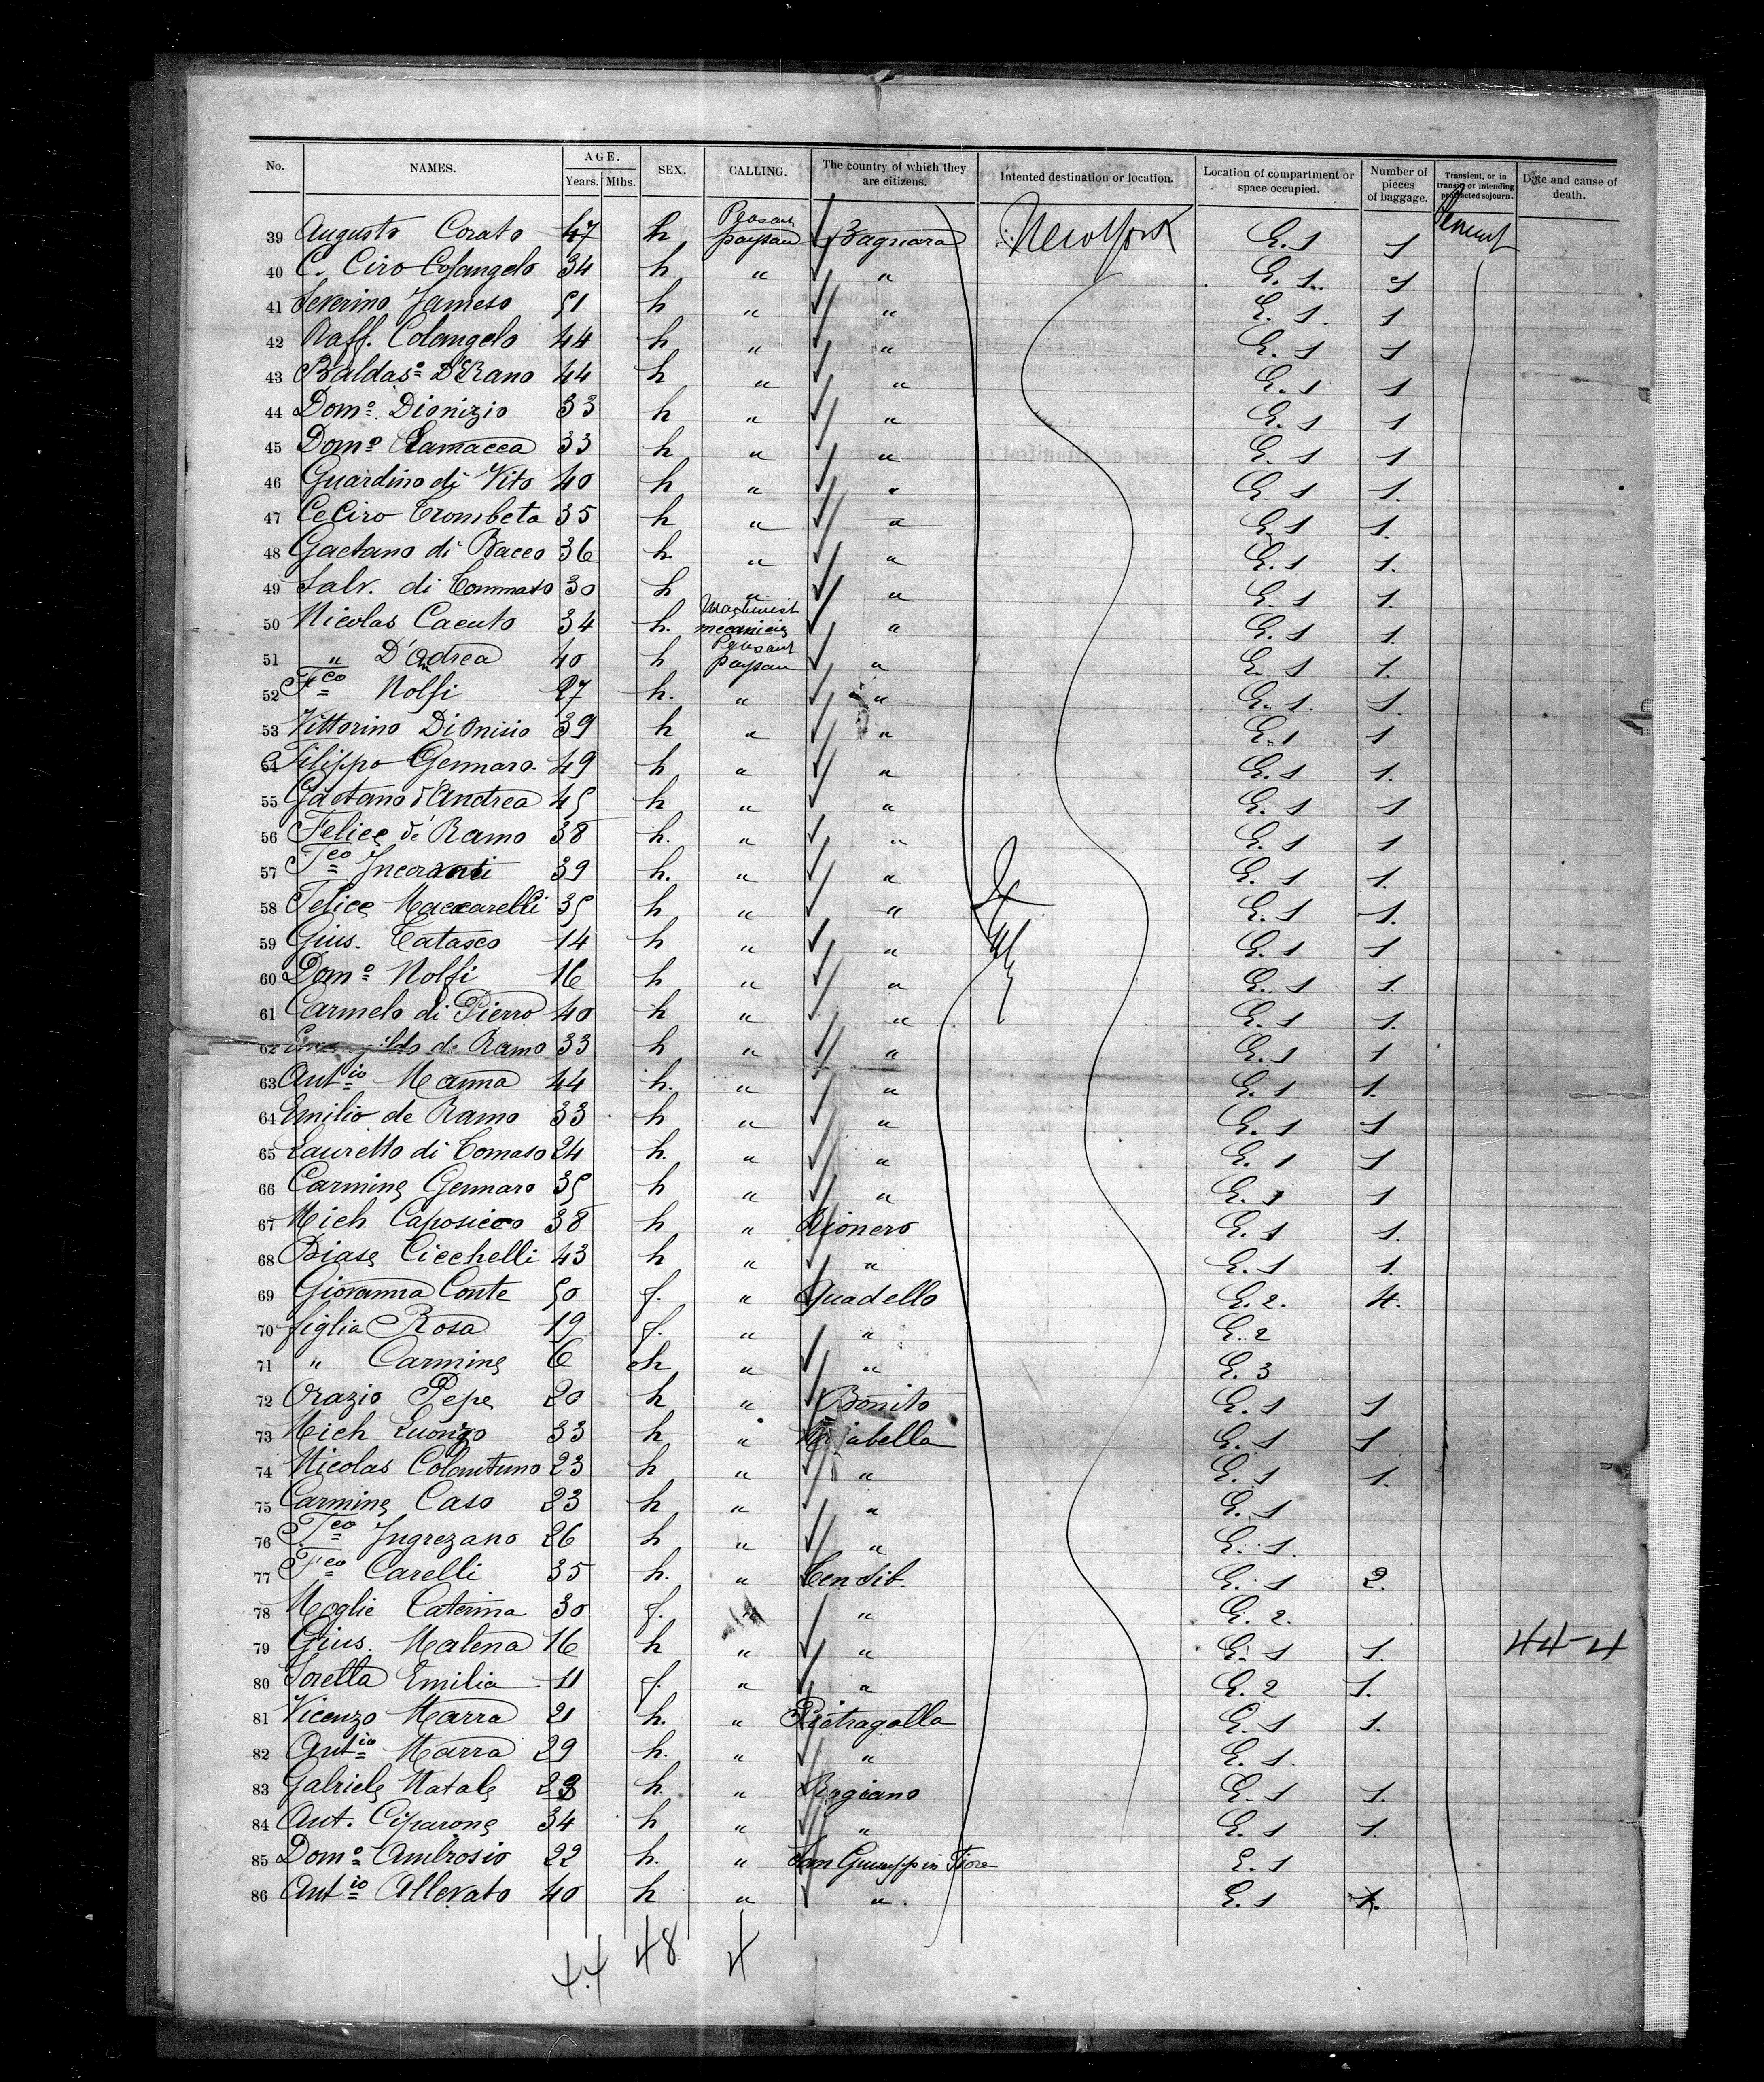 No. NAMES. AGE. SEX. CALLING. The country of which they are citizens. Intented destination or location. Location of compartment or space occupied. Number of pieces of baggage. Transient, or in transit or intending protracted sojourn. Date and cause of death.
Years. Mths.
39 Augusto Corato 47 h Peasant paysan Bagnara New York E. 1 1
40 C. Ciro Colangelo 34 h " " E. 1. 1
41 Severino Jameso 51 h " " E. 1. 1
42 Raff. Colangelo 44 h " " E. 1 1
43 Baldaso D'Erano 44 h " " E. 1 1
44 Domo Dionizio 33 h " " E. 1 1.
45 Domo Lamacca 33 h " " E. 1 1
46 Guardino di Vito 40 h " " E. 1 1.
47 CeCiro Trombeta 35 h " " E. 1 1.
48 Gaetano di Bacco 36 h. " " E. 1 1.
49 Salv. di Tommaso 30 h " " E. 1 1.
50 Nicolas Cacuto 34 h. Machinist mecanicien " E. 1 1.
51 " D'Andrea 40 h Peasant paysan " E. 1 1.
52 Fco Nolfi 27 h. " " E. 1. 1.
53 Vittorino DiOnisio 39 h " " E. 1 1
54 Filippo Gennaro. 49 h " " E. 1 1.
55 Gaetano d'Andrea 45 h " " E. 1 1
56 Felice de Ramo 38 h. " " E. 1 1
57 Fco Incoranti 39 h. " " E. 1 1.
58 Felice Maccarelli 35 h " " E. 1 1.
59 Gius. Catasco 14 h " " E. 1 1
60 Domo Nolfi 16 h " " E. 1 1.
61 Carmelo di Pierro 40 h " " E. 1 1.
62 di Ramo 33 h " " E. 1 1
63 Antio Manna 44 h. " " E. 1 1.
64 Emilio de Ramo 33 h " " E. 1 1
65 Lauretto di Tomaso 24 h. " " E. 1 1
66 Carmine Gennaro 35 h " " E. 1 1
67 Mich Caposicco 38 h " Rionero E. 1 1.
68 Biase Cicchelli 43 h " " E. 1 1.
69 Giovanna Conte 50 f. " Guadello E. 2. 4.
70 figlia Rosa 19 f. " " E. 2
71 " Carmine 6 h " " E. 3
72 Orazio Pepe 20 h " Bonito E. 1 1
73 Mich Luongo 33 h " Mirabella E. 1 1
74 Nicolas Colantuno 23 h " " E. 1 1.
75 Carmine Caso 23 h " " E. 1
76 Fco Ingrezano 26 h " " E. 1.
77 Fco Carelli 35 h. " E. 1 2.
78 Moglie Caterina 30 f. " " E. 2.
79 Gius. Malena 16 h " " E. 1 1. 44-4
80 Sorella Emilia 11 f. " " E. 2 1.
81 Vicenzo Marra 21 h. " Pietragalla E. 1 1.
82 Antio Marra 29 h. " " E. 1.
83 Gabriele Natale 23 h. " Rogiano E. 1 1.
84 Ant. Ciparone 34 h " " E. 1 1.
85 Domo Ambrosio 22 h. " San Fiore E. 1
86 Antio Allevato 40 h " " E. 1 1.
44 48 4